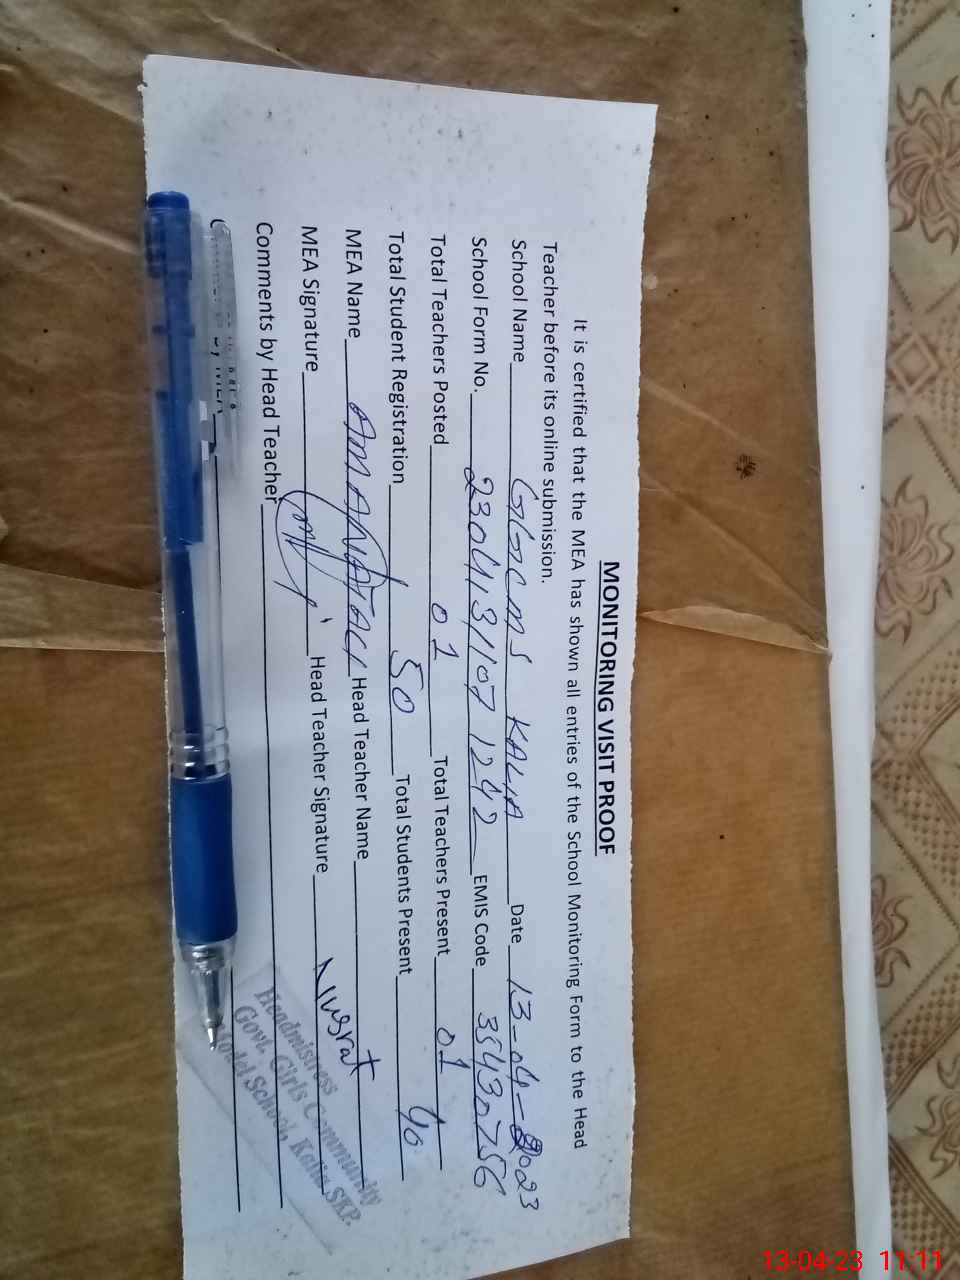 MONITORING VISIT PROOF
It is certified that the MEA has shown all entries of the School Monitoring Form to the Head
Teacher before its online submission.
School Name GGCMS KALIA Date 13-04-2023
School Form No. 230413/107 1242 EMIS Code 35430756
Total Teachers Posted 01 Total Teachers Present 01
Total Student Registration 50 Total Students Present 40
MEA Name Head Teacher Name
MEA Signature Head Teacher Signature Nusrat
Comments by Head Teacher
Headmistress
Govt. Girls Community
Model School, Kalia SKP.
13-04-23 11:11